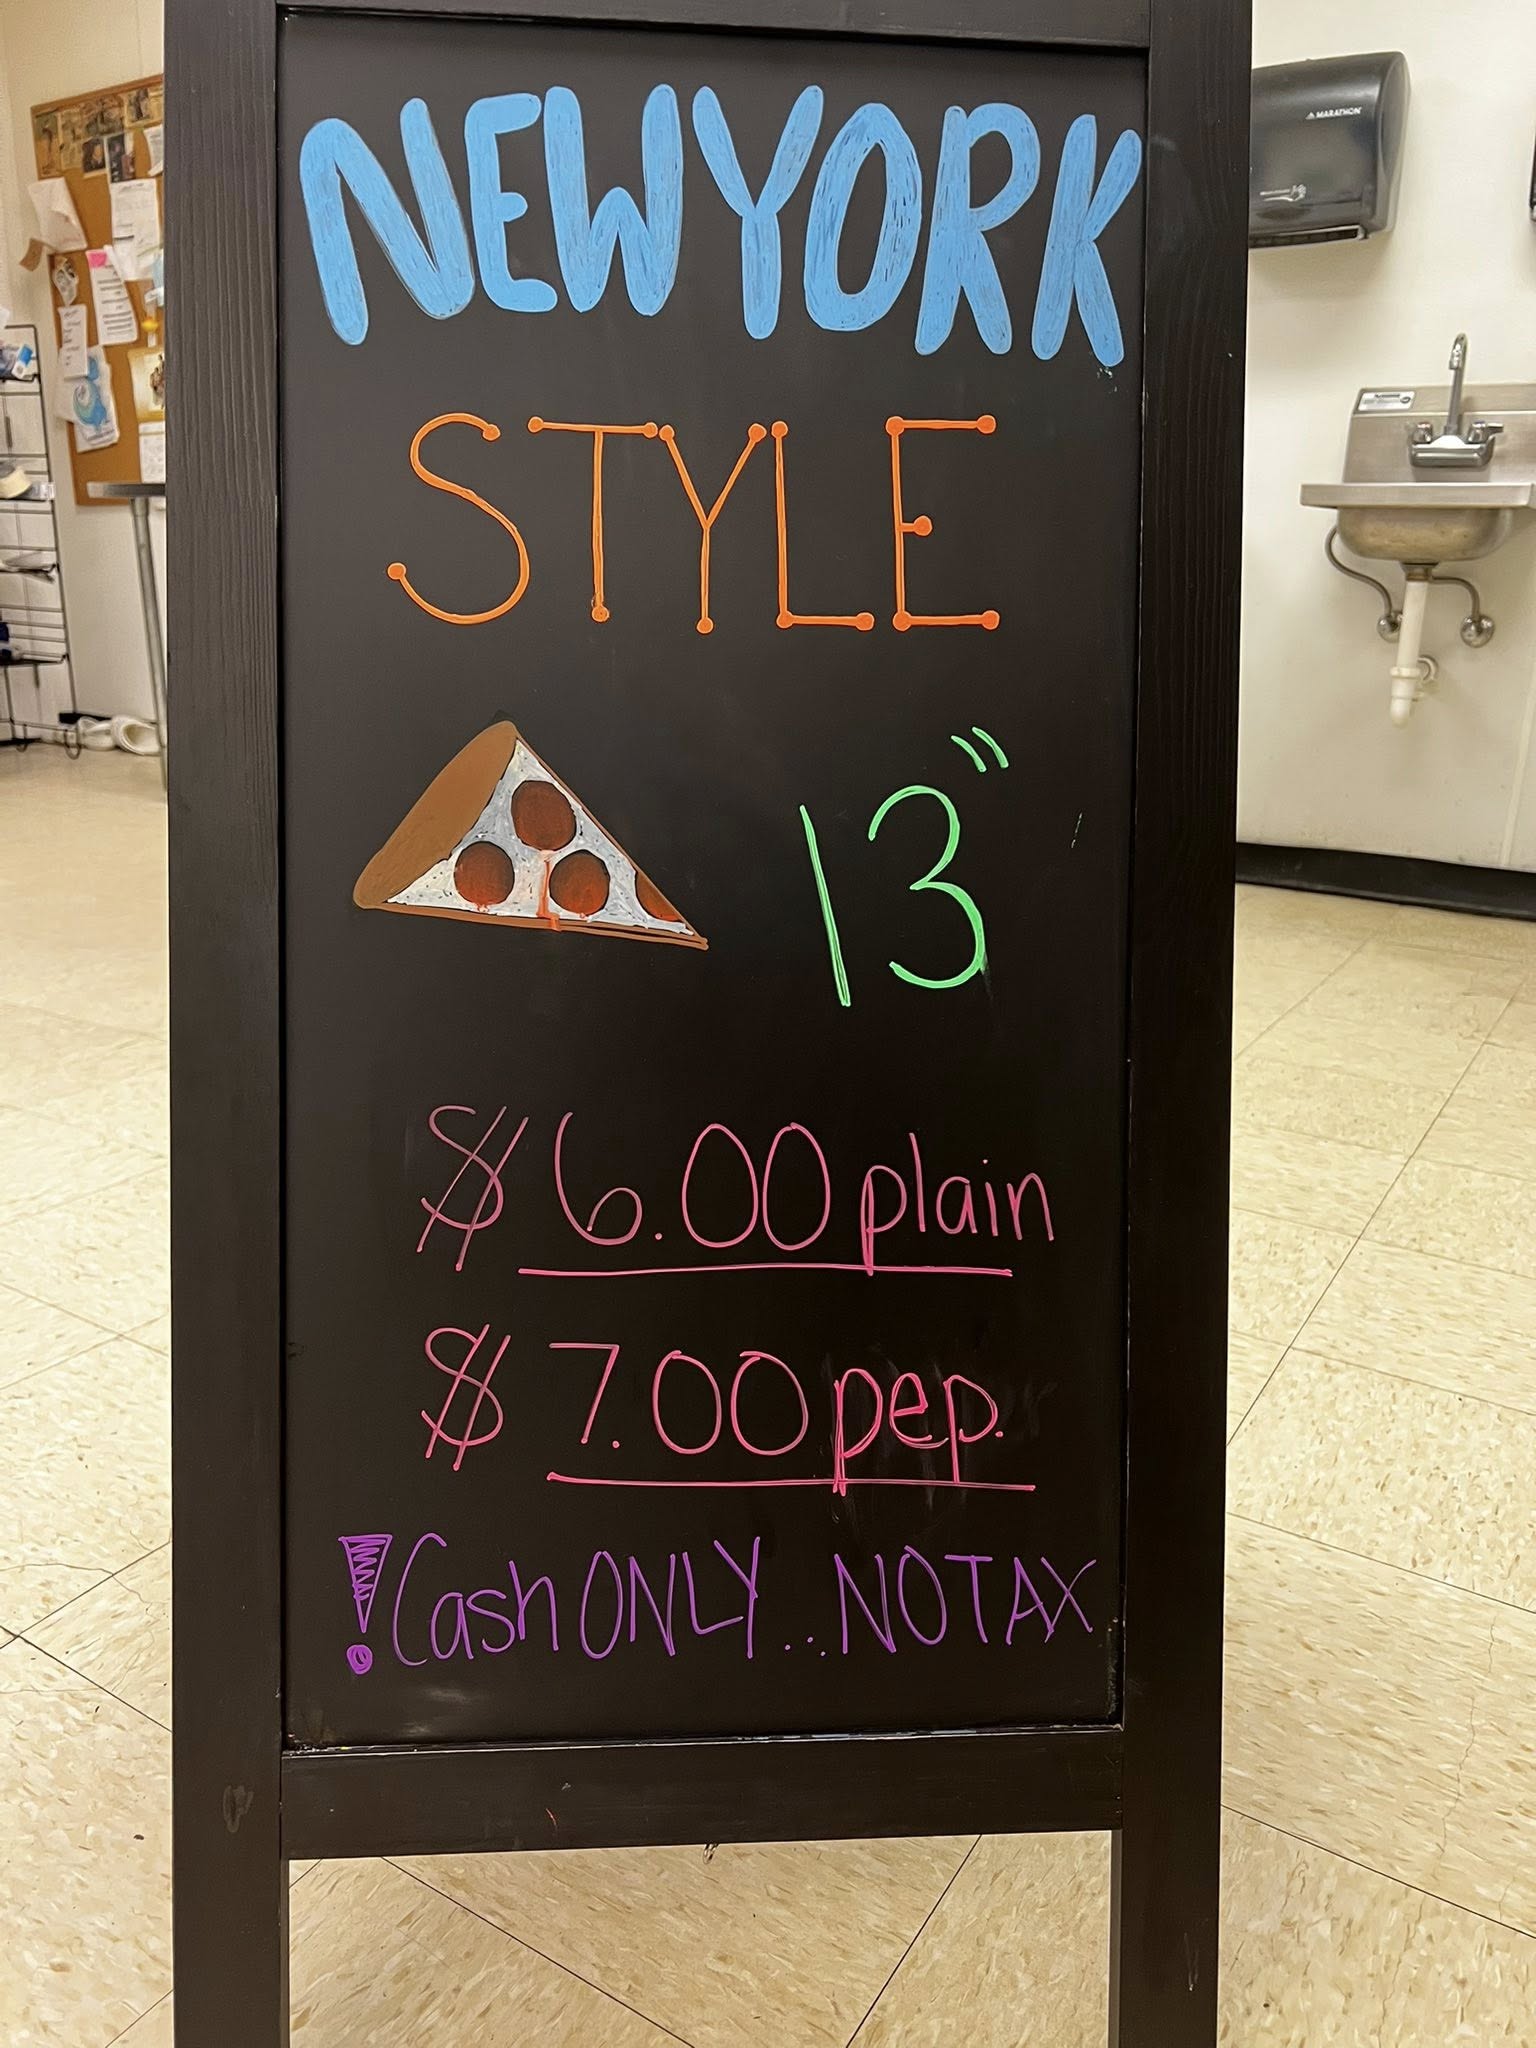 NEW YORK
STYLE
13"
$6.00 plain
$7.00 pep.
! Cash ONLY... NO TAX
MARATHON